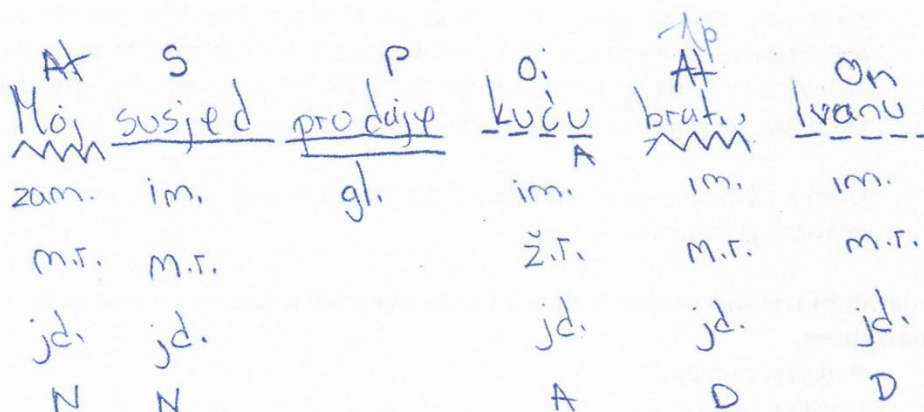 Ap
At S P O. At On
Moj susjed prodaje kuću bratu Ivanu
A
zam. im. gl. im. im. im.
m.r. m.r. ž.r. m.r. m.r.
jd. jd. jd. jd. jd.
N N A D D